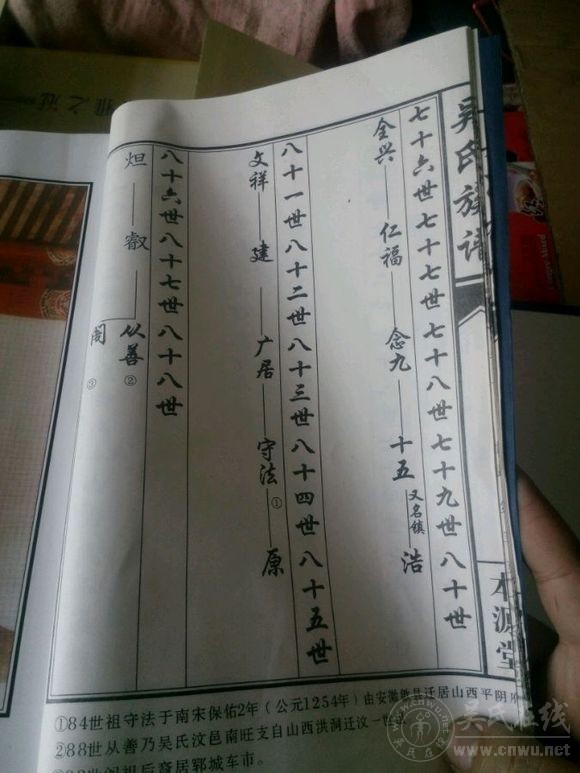 吴氏族谱
本源堂
七十六世七十七世七十八世七十九世八十世
全兴 仁福 念九 十五 又名镇 浩
八十一世八十二世八十三世八十四世八十五世
文祥 建 广居 守法 ① 原
八十六世八十七世八十八世
烜 叡 从善 ②
阁 ③
①84世祖守法于南宋保佑2年(公元1254年)由安徽歙县迁居山西平阴
②88世从善乃吴氏汶邑南旺支自山西洪洞迁汶一世祖
居郓城车市。
吴氏在线
www.cnwu.net